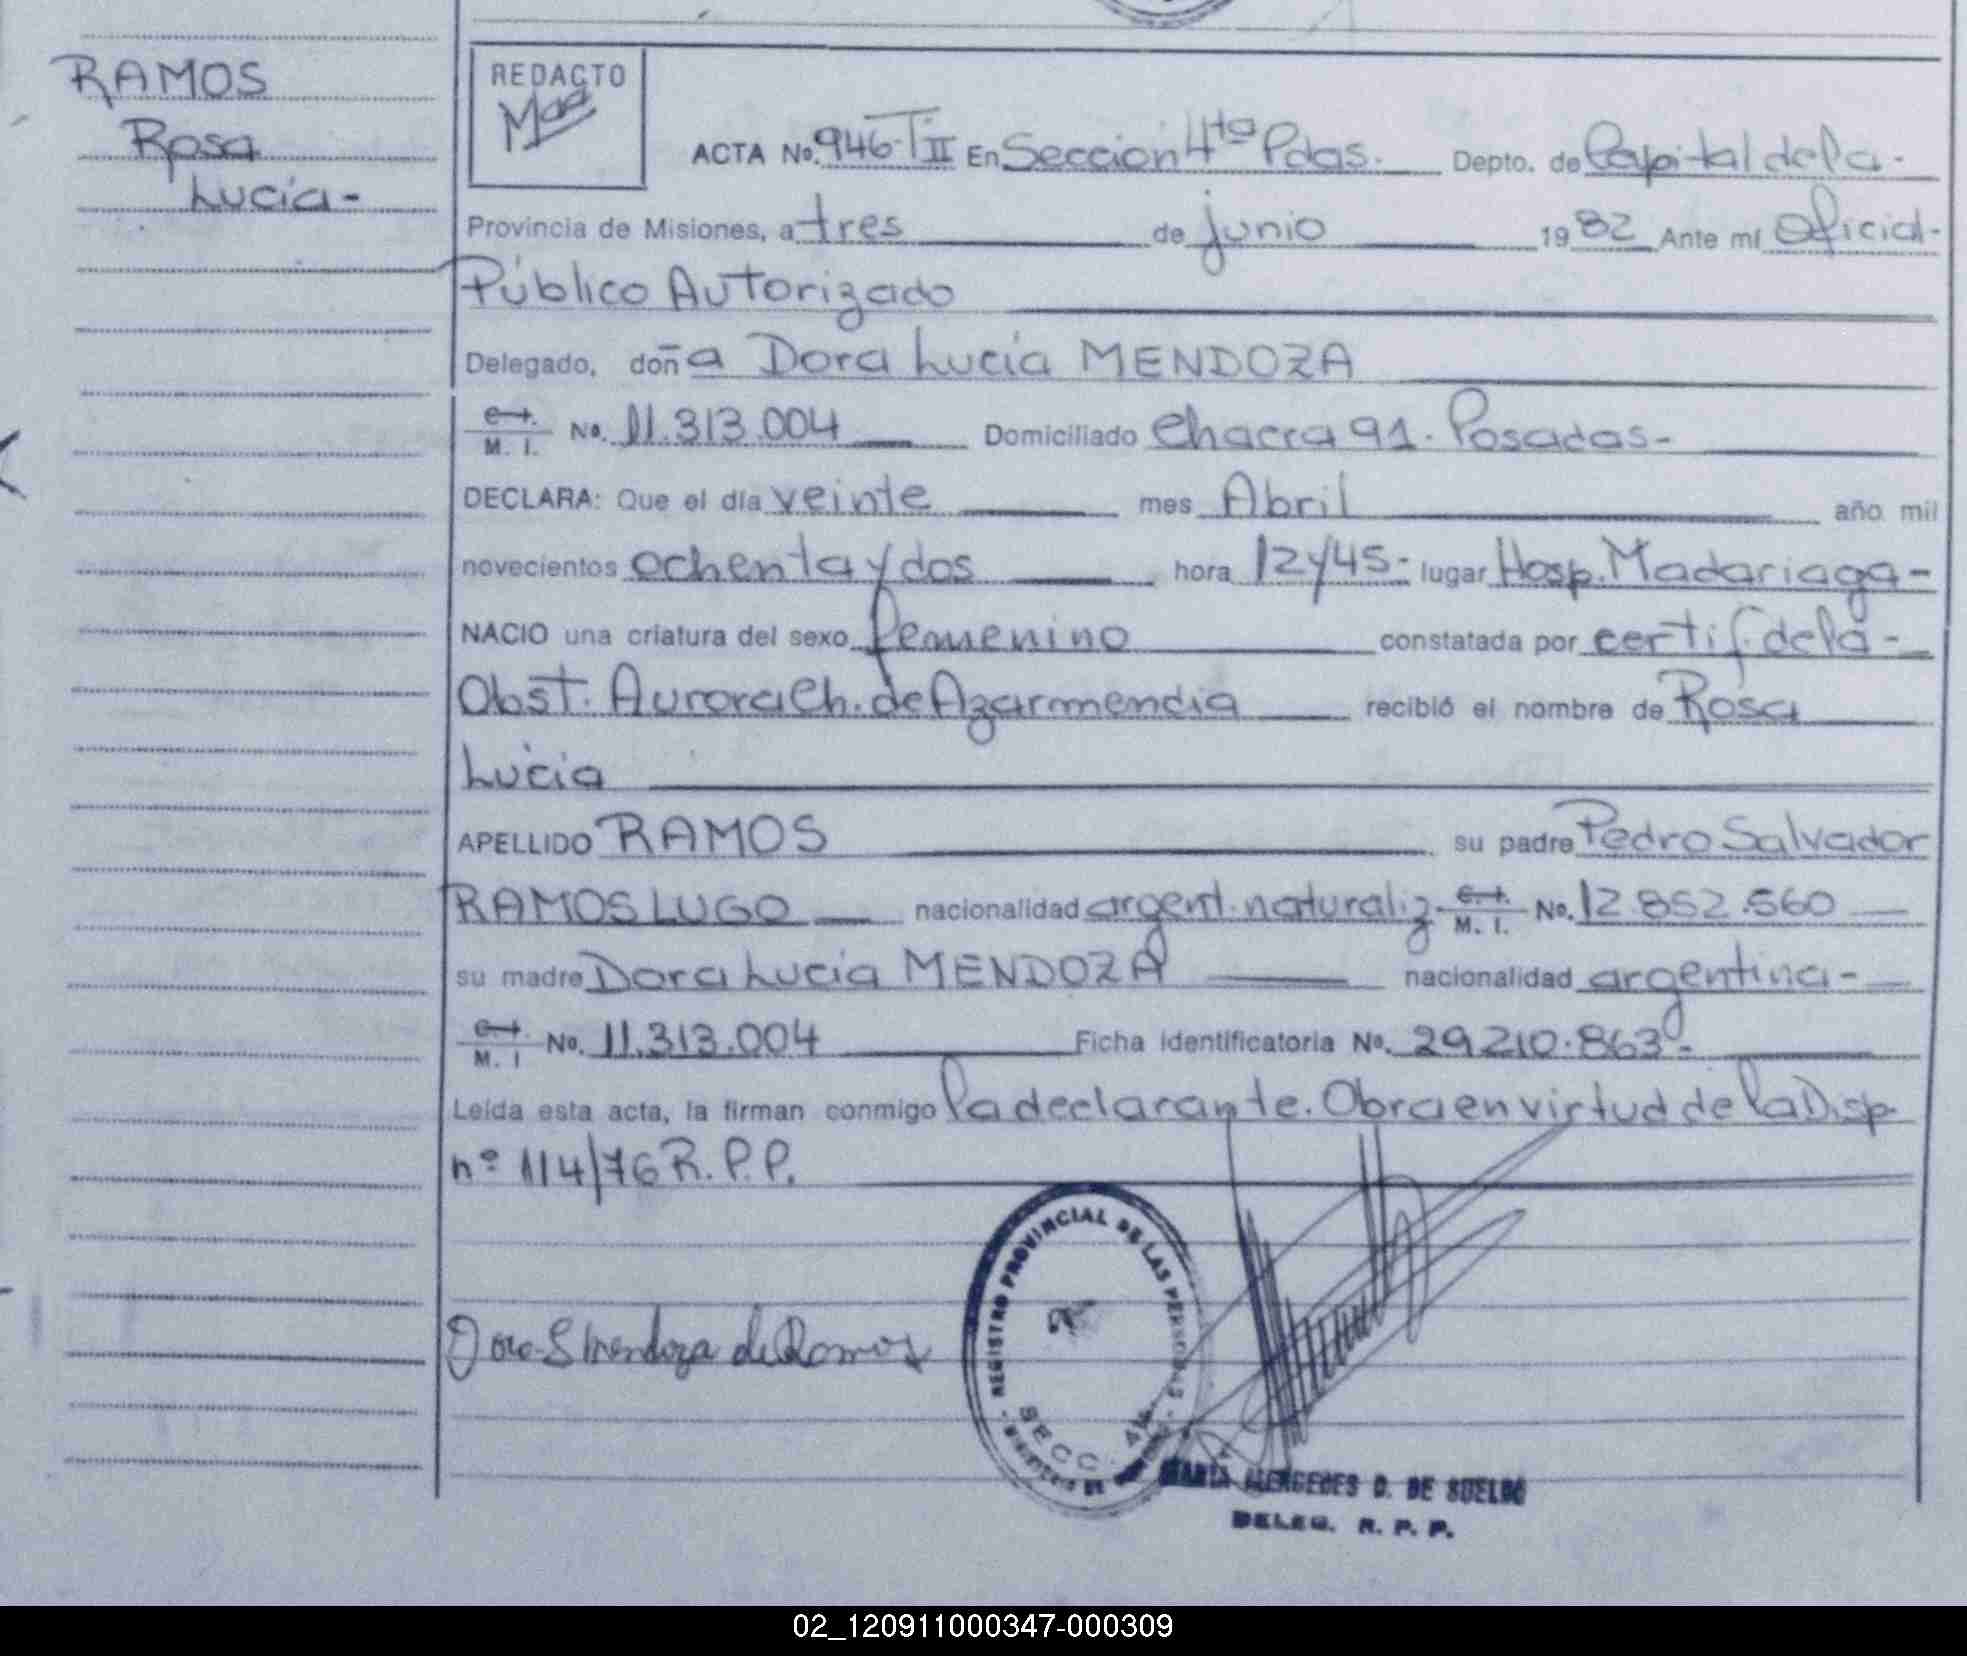 RAMOS
Rosa
Lucía-
REDACTO
ACTA No. 946-T:II En Sección 4ta Pdas. Depto. de Capital de la-
Provincia de Misiones, a tres de junio 1982 Ante mí Oficial-
Público Autorizado
Delegado, doña Dora Lucía MENDOZA
M. I. No. 11.313.004 Domiciliado Chacra 91. Posadas-
DECLARA: Que el día veinte mes Abril año mil
novecientos ochenta y dos hora 12 y 45- lugar Hosp. Madariaga-
NACIO una criatura del sexo femenino constatada por certif. de la-
Obst. Aurora Ch. de Azarmendia recibió el nombre de Rosa
Lucía
APELLIDO RAMOS su padre Pedro Salvador
RAMOS LUGO nacionalidad argent. naturaliz. M. I. No. 12.852.560
su madre Dora Lucía MENDOZA nacionalidad argentina-
M. I No. 11.313.004 Ficha identificatoria No. 29.210.863-
Leída esta acta, la firman conmigo la declarante. Obra en virtud de la Disp
nº 114/76 R.P.P.
REGISTRO PROVINCIAL DE LAS PERSONAS
SECC. 4ta
Dora L Mendoza de Ramos
MARIA MERCEDES D. DE SUELDO
DELEG. R. P. P.
02_120911000347-000309